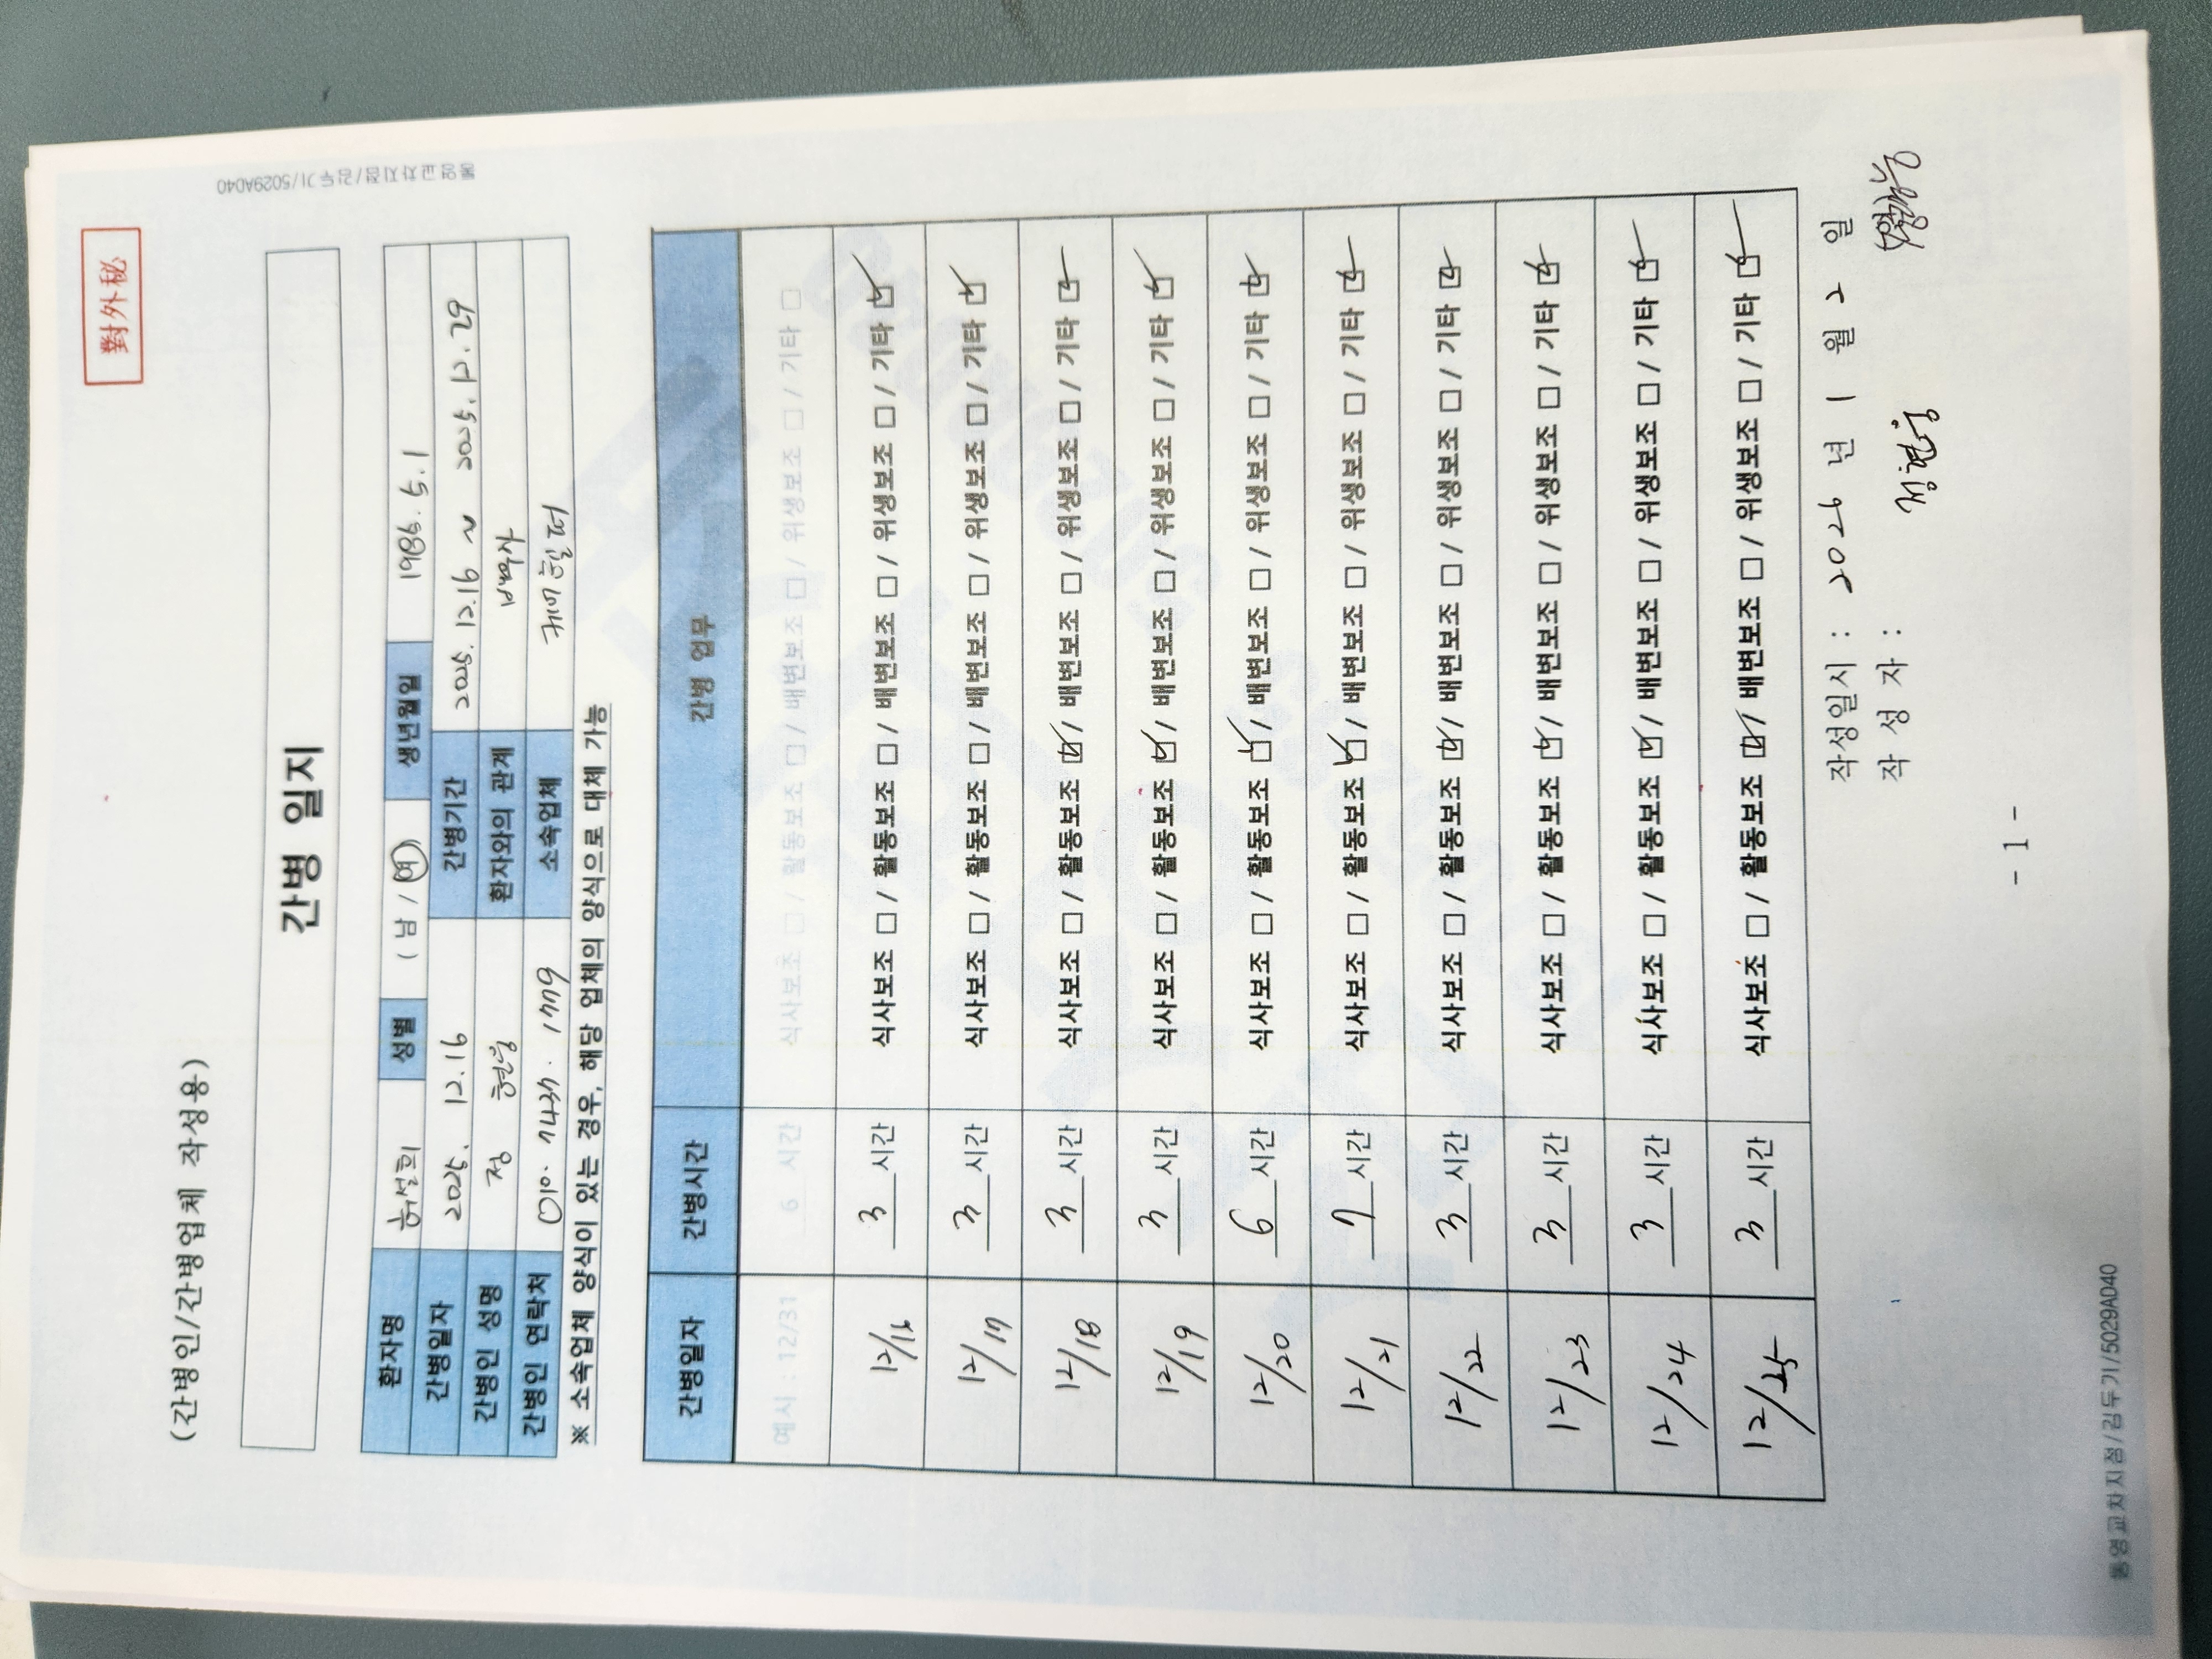 對外秘
통영교차지점/김두기/5029A040
(간병인/간병업체 작성용)
간병 일지
환자명 허설희 성별 (남 / 여) 생년월일 1986. 5. 1
간병일자 2025. 12. 16 간병기간 2025. 12. 16 ~ 2025. 12. 29
간병인 성명 정 현웅 환자와의 관계
간병인 연락처 소속업체 케어힐떠
※ 소속업체 양식이 있는 경우, 해당 업체의 양식으로 대체 가능
간병일자 간병시간 간병 업무
예시 : 12/31 6 시간 식사보조 □ / 활동보조 □ / 배변보조 □ / 위생보조 □ / 기타 □
12/16 3 시간 식사보조 □ / 활동보조 □ / 배변보조 □ / 위생보조 □ / 기타 ☑
12/17 3 시간 식사보조 □ / 활동보조 □ / 배변보조 □ / 위생보조 □ / 기타 ☑
12/18 3 시간 식사보조 □ / 활동보조 ☑ / 배변보조 □ / 위생보조 □ / 기타 ☑
12/19 3 시간 식사보조 □ / 활동보조 ☑ / 배변보조 □ / 위생보조 □ / 기타 ☑
12/20 6 시간 식사보조 □ / 활동보조 ☑ / 배변보조 □ / 위생보조 □ / 기타 ☑
12/21 7 시간 식사보조 □ / 활동보조 ☑ / 배변보조 □ / 위생보조 □ / 기타 ☑
12/22 3 시간 식사보조 □ / 활동보조 ☑ / 배변보조 □ / 위생보조 □ / 기타 ☑
12/23 3 시간 식사보조 □ / 활동보조 ☑ / 배변보조 □ / 위생보조 □ / 기타 ☑
12/24 3 시간 식사보조 □ / 활동보조 ☑ / 배변보조 □ / 위생보조 □ / 기타 ☑
12/25 3 시간 식사보조 □ / 활동보조 ☑ / 배변보조 □ / 위생보조 □ / 기타 ☑
작성일시 : 2026 년 1 월 2 일
작 성 자 : 정현웅
- 1 -
통영교차지점/김두기/5029A040